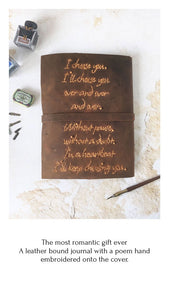 I choose you.
I'll choose you
over and over
and over.
Without pause,
without a doubt,
In a heartbeat
I'll keep choosing you.
The most romantic gift ever
A leather bound journal with a poem hand
embroidered onto the cover.